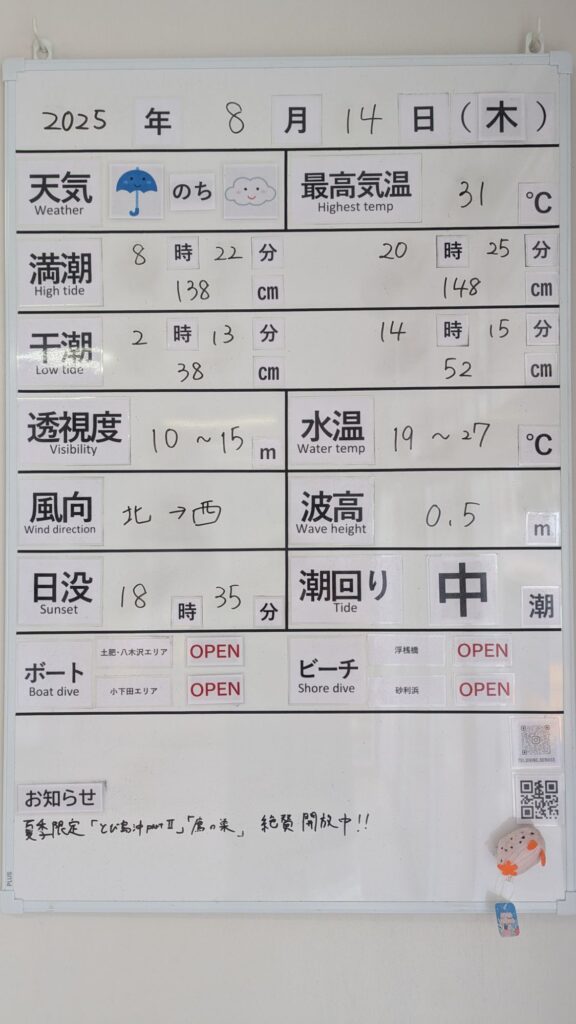 2025 年 8 月 14 日 (木)
天気 のち
Weather
最高気温 31 ℃
Highest temp
満潮 8 時 22 分 20 時 25 分
High tide 138 cm 148 cm
干潮 2 時 13 分 14 時 15 分
Low tide 38 cm 52 cm
透視度 10 ~ 15 m
Visibility
水温 19 ~ 27 ℃
Water temp
風向 北 → 西
Wind direction
波高 0.5 m
Wave height
日没 18 時 35 分
Sunset
潮回り 中 潮
Tide
ボート 土肥・八木沢エリア OPEN
Boat dive 小下田エリア OPEN
ビーチ 浮桟橋 OPEN
Shore dive 砂利浜 OPEN
お知らせ
夏季限定「とび島沖 part Ⅱ」「の巣」 絶賛開放中!!
PLUS